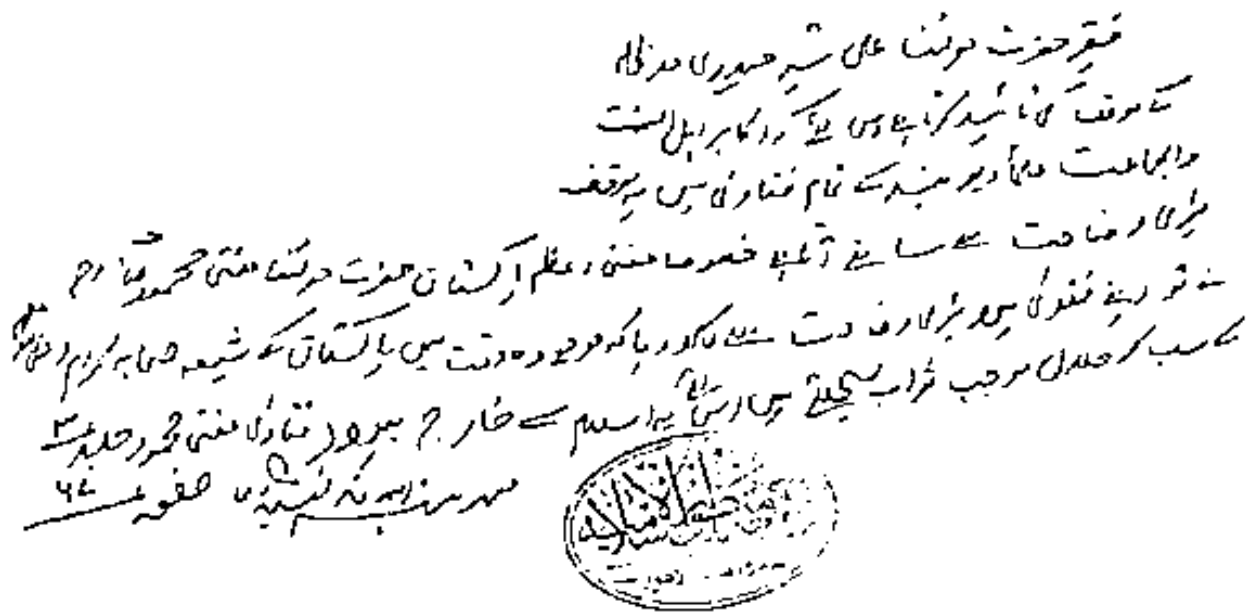 فقیر حضرت مولٰنا علی شیر حیدری مدظلہ
کے موقف کی تائید کرتا ہے اس لئے کہ اکابر اہل السنت
والجماعت علماء دیوبند کے تمام فتاویٰ میں یہ موقف
بڑی وضاحت سے سامنے آتا ہے خصوصا مفتی اعظم پاکستان حضرت مولٰنا مفتی محمود صاحب رح
نے تو اپنے فتویٰ میں بڑی وضاحت سے لکھ دیا کہ موجودہ وقت میں پاکستان کے شیعہ صحابہ کرام
کے سب کو حلال موجب ثواب سمجھتے ہیں اس لئے یہ اسلام سے خارج ہیں فتاویٰ مفتی محمود جلد ۳
صفحہ ۶۷